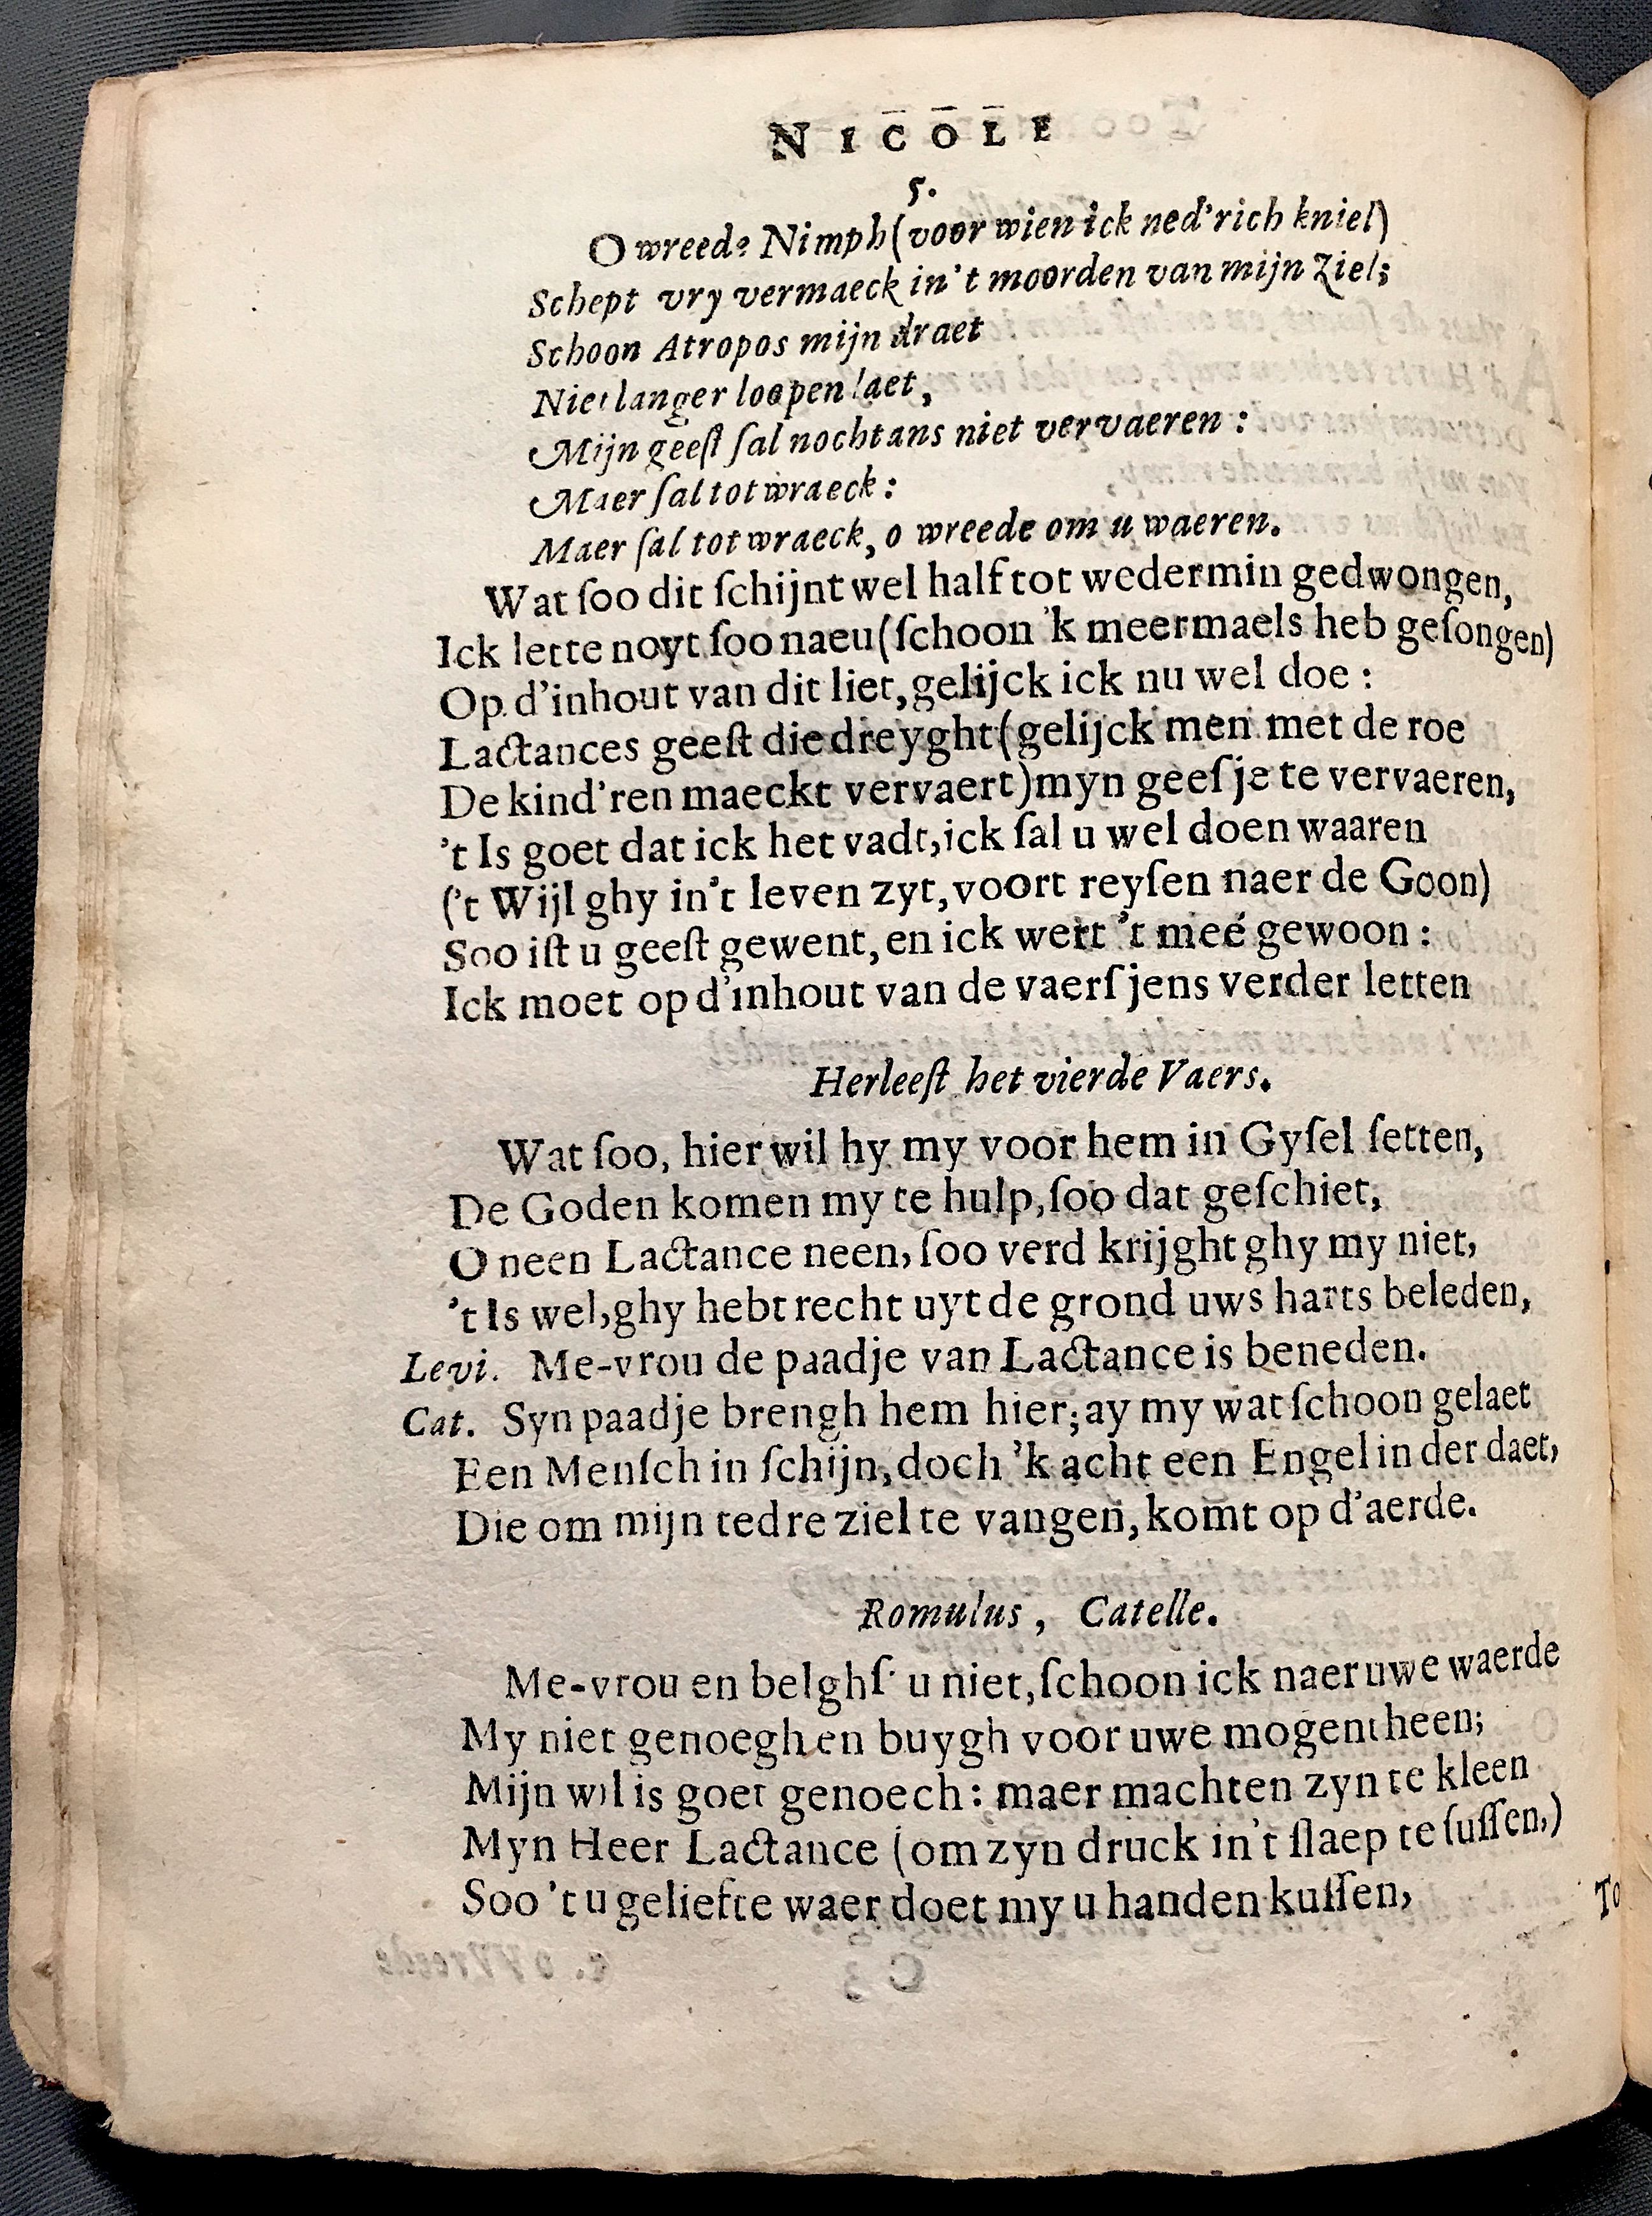 NICOLE
5.
O wreede Nimph (voor wien ick ned'rich kniel)
Schept vry vermaeck in't moorden van mijn Ziel;
Schoon Atropos mijn draet
Niet langer loopen laet,
Mijn geeſt ſal nochtans niet vervaeren:
Maer ſal tot wraeck:
Maer ſal tot wraeck, o wreede om u waeren.
Wat ſoo dit ſchijnt wel half tot wedermin gedwongen,
Ick lette noyt ſoo naeu (ſchoon 'k meermaels heb geſongen)
Op d'inhout van dit liet, gelijck ick nu wel doe:
Lactances geeſt die dreyght (gelijck men met de roe
De kind'ren maeckt vervaert) myn geeſje te vervaeren,
't Is goet dat ick het vadt, ick ſal u wel doen waaren
('t Wijl ghy in't leven zyt, voort reyſen naer de Goon)
Soo iſt u geeſt gewent, en ick wert 't meé gewoon:
Ick moet op d'inhout van de vaerſjens verder letten
Herleeſt het vierde Vaers.
Wat ſoo, hier wil hy my voor hem in Gyſel ſetten,
De Goden komen my te hulp, ſoo dat geſchiet,
O neen Lactance neen, ſoo verd krijght ghy my niet,
't Is wel, ghy hebt recht uyt de grond uws harts beleden,
Levi. Me-vrou de paadje van Lactance is beneden.
Cat. Syn paadje brengh hem hier; ay my wat ſchoon gelaet
Een Menſch in ſchijn, doch 'k acht een Engel in der daet,
Die om mijn tedre ziel te vangen, komt op d'aerde.
Romulus, Catelle.
Me-vrou en belghſ u niet, ſchoon ick naer uwe waerde
My niet genoegh en buygh voor uwe mogentheen;
Mijn wil is goet genoech: maer machten zyn te kleen
Myn Heer Lactance (om zyn druck in't ſlaep te ſuſſen,)
Soo 't u geliefte waer doet my u handen kuſſen,
To